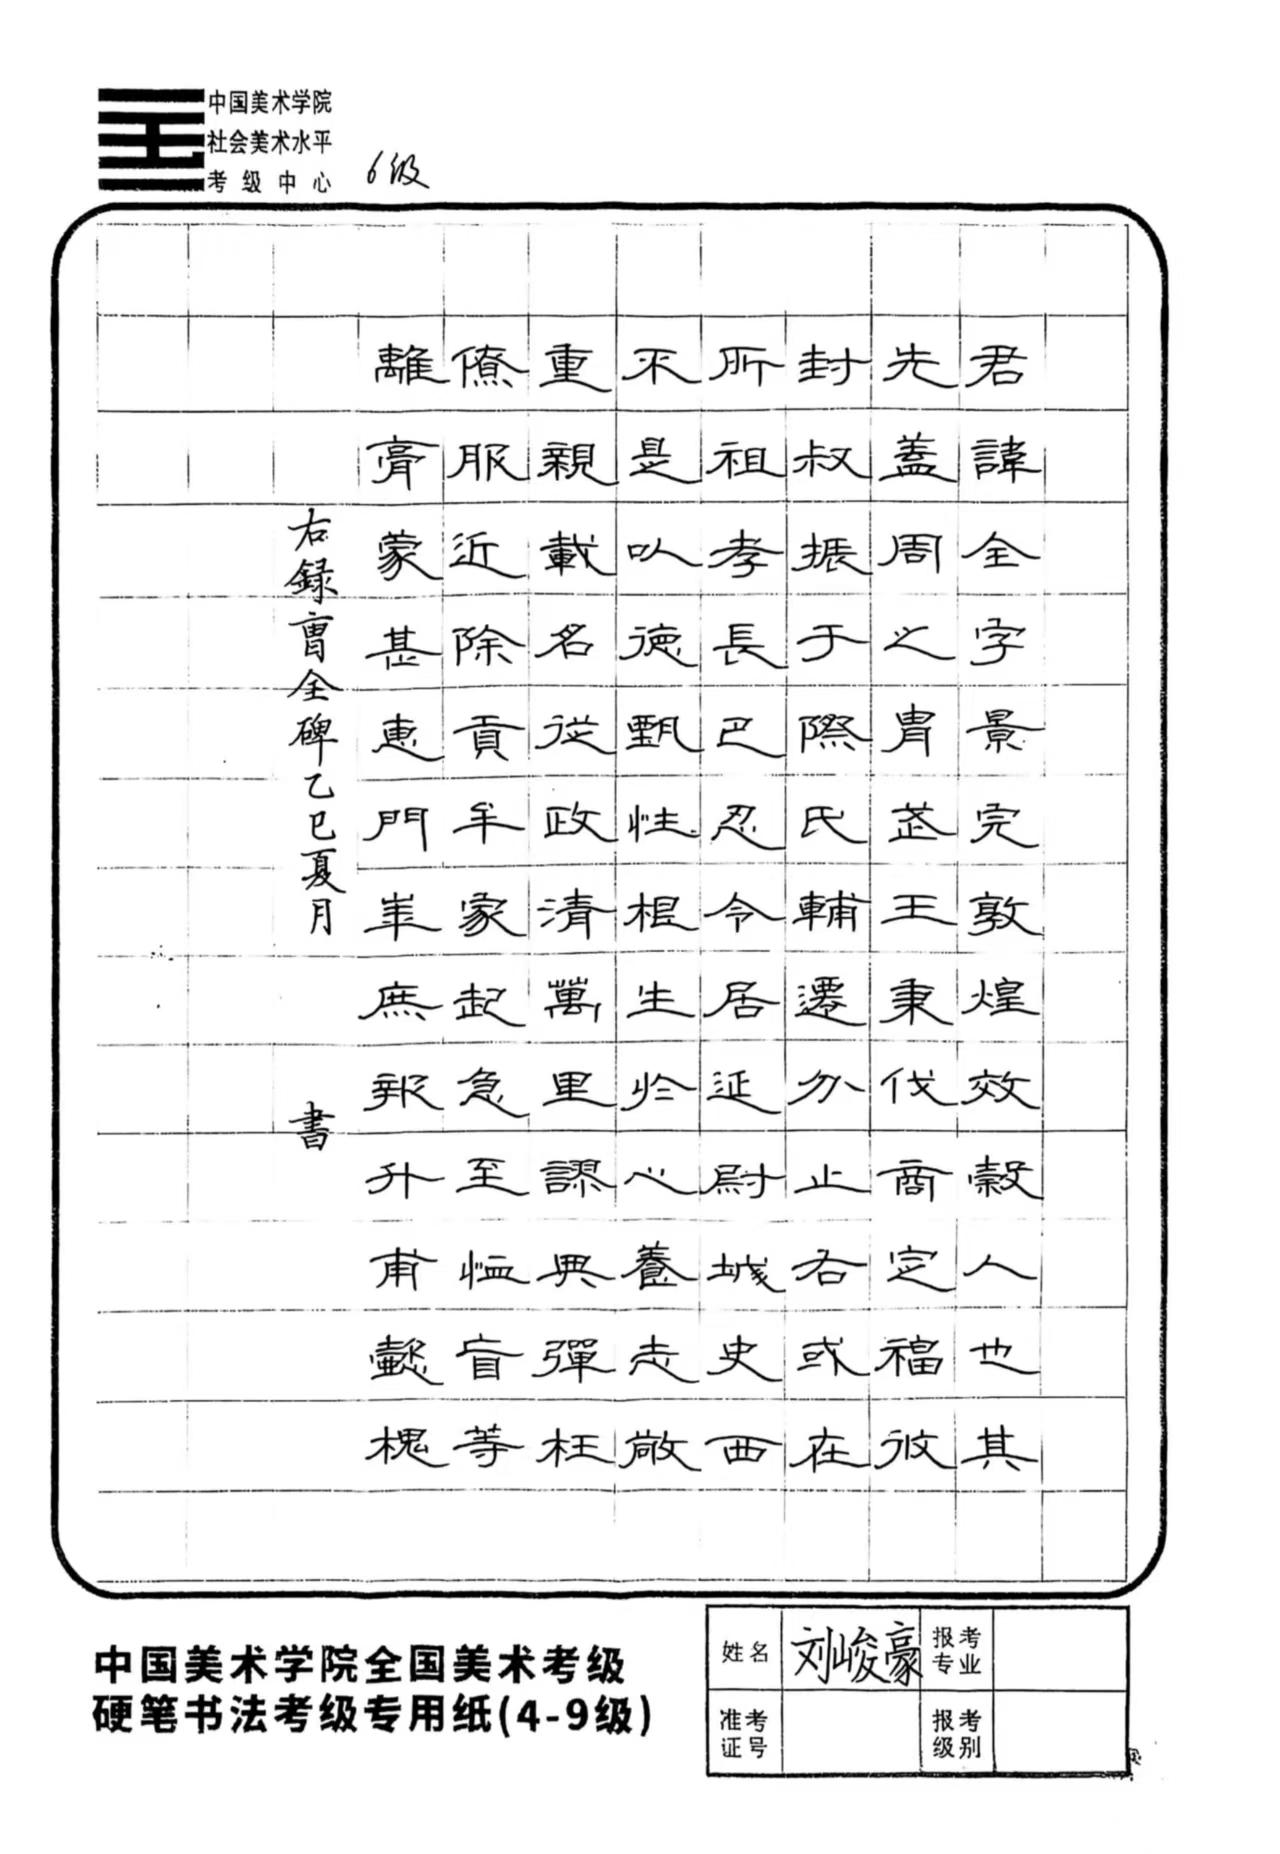 中国美术学院
社会美术水平
考级中心
6级
君諱全字景完敦煌效穀人也其
先蓋周之胄武王秉伐商定福攸
封叔振于際氏輔遷分止右或在
所祖孝長巴忍令居延尉城史西
不是以德甄性根生於心養志敞
重親載名從政清萬里謬典彈枉
僚服近除貢羊家起急至恤盲等
離膏蒙甚惠門年庶報升甫懿槐
右録曹全碑乙巳夏月 書
中国美术学院全国美术考级
硬笔书法考级专用纸(4-9级)
姓名 刘峻豪 报考专业
准考证号 报考级别